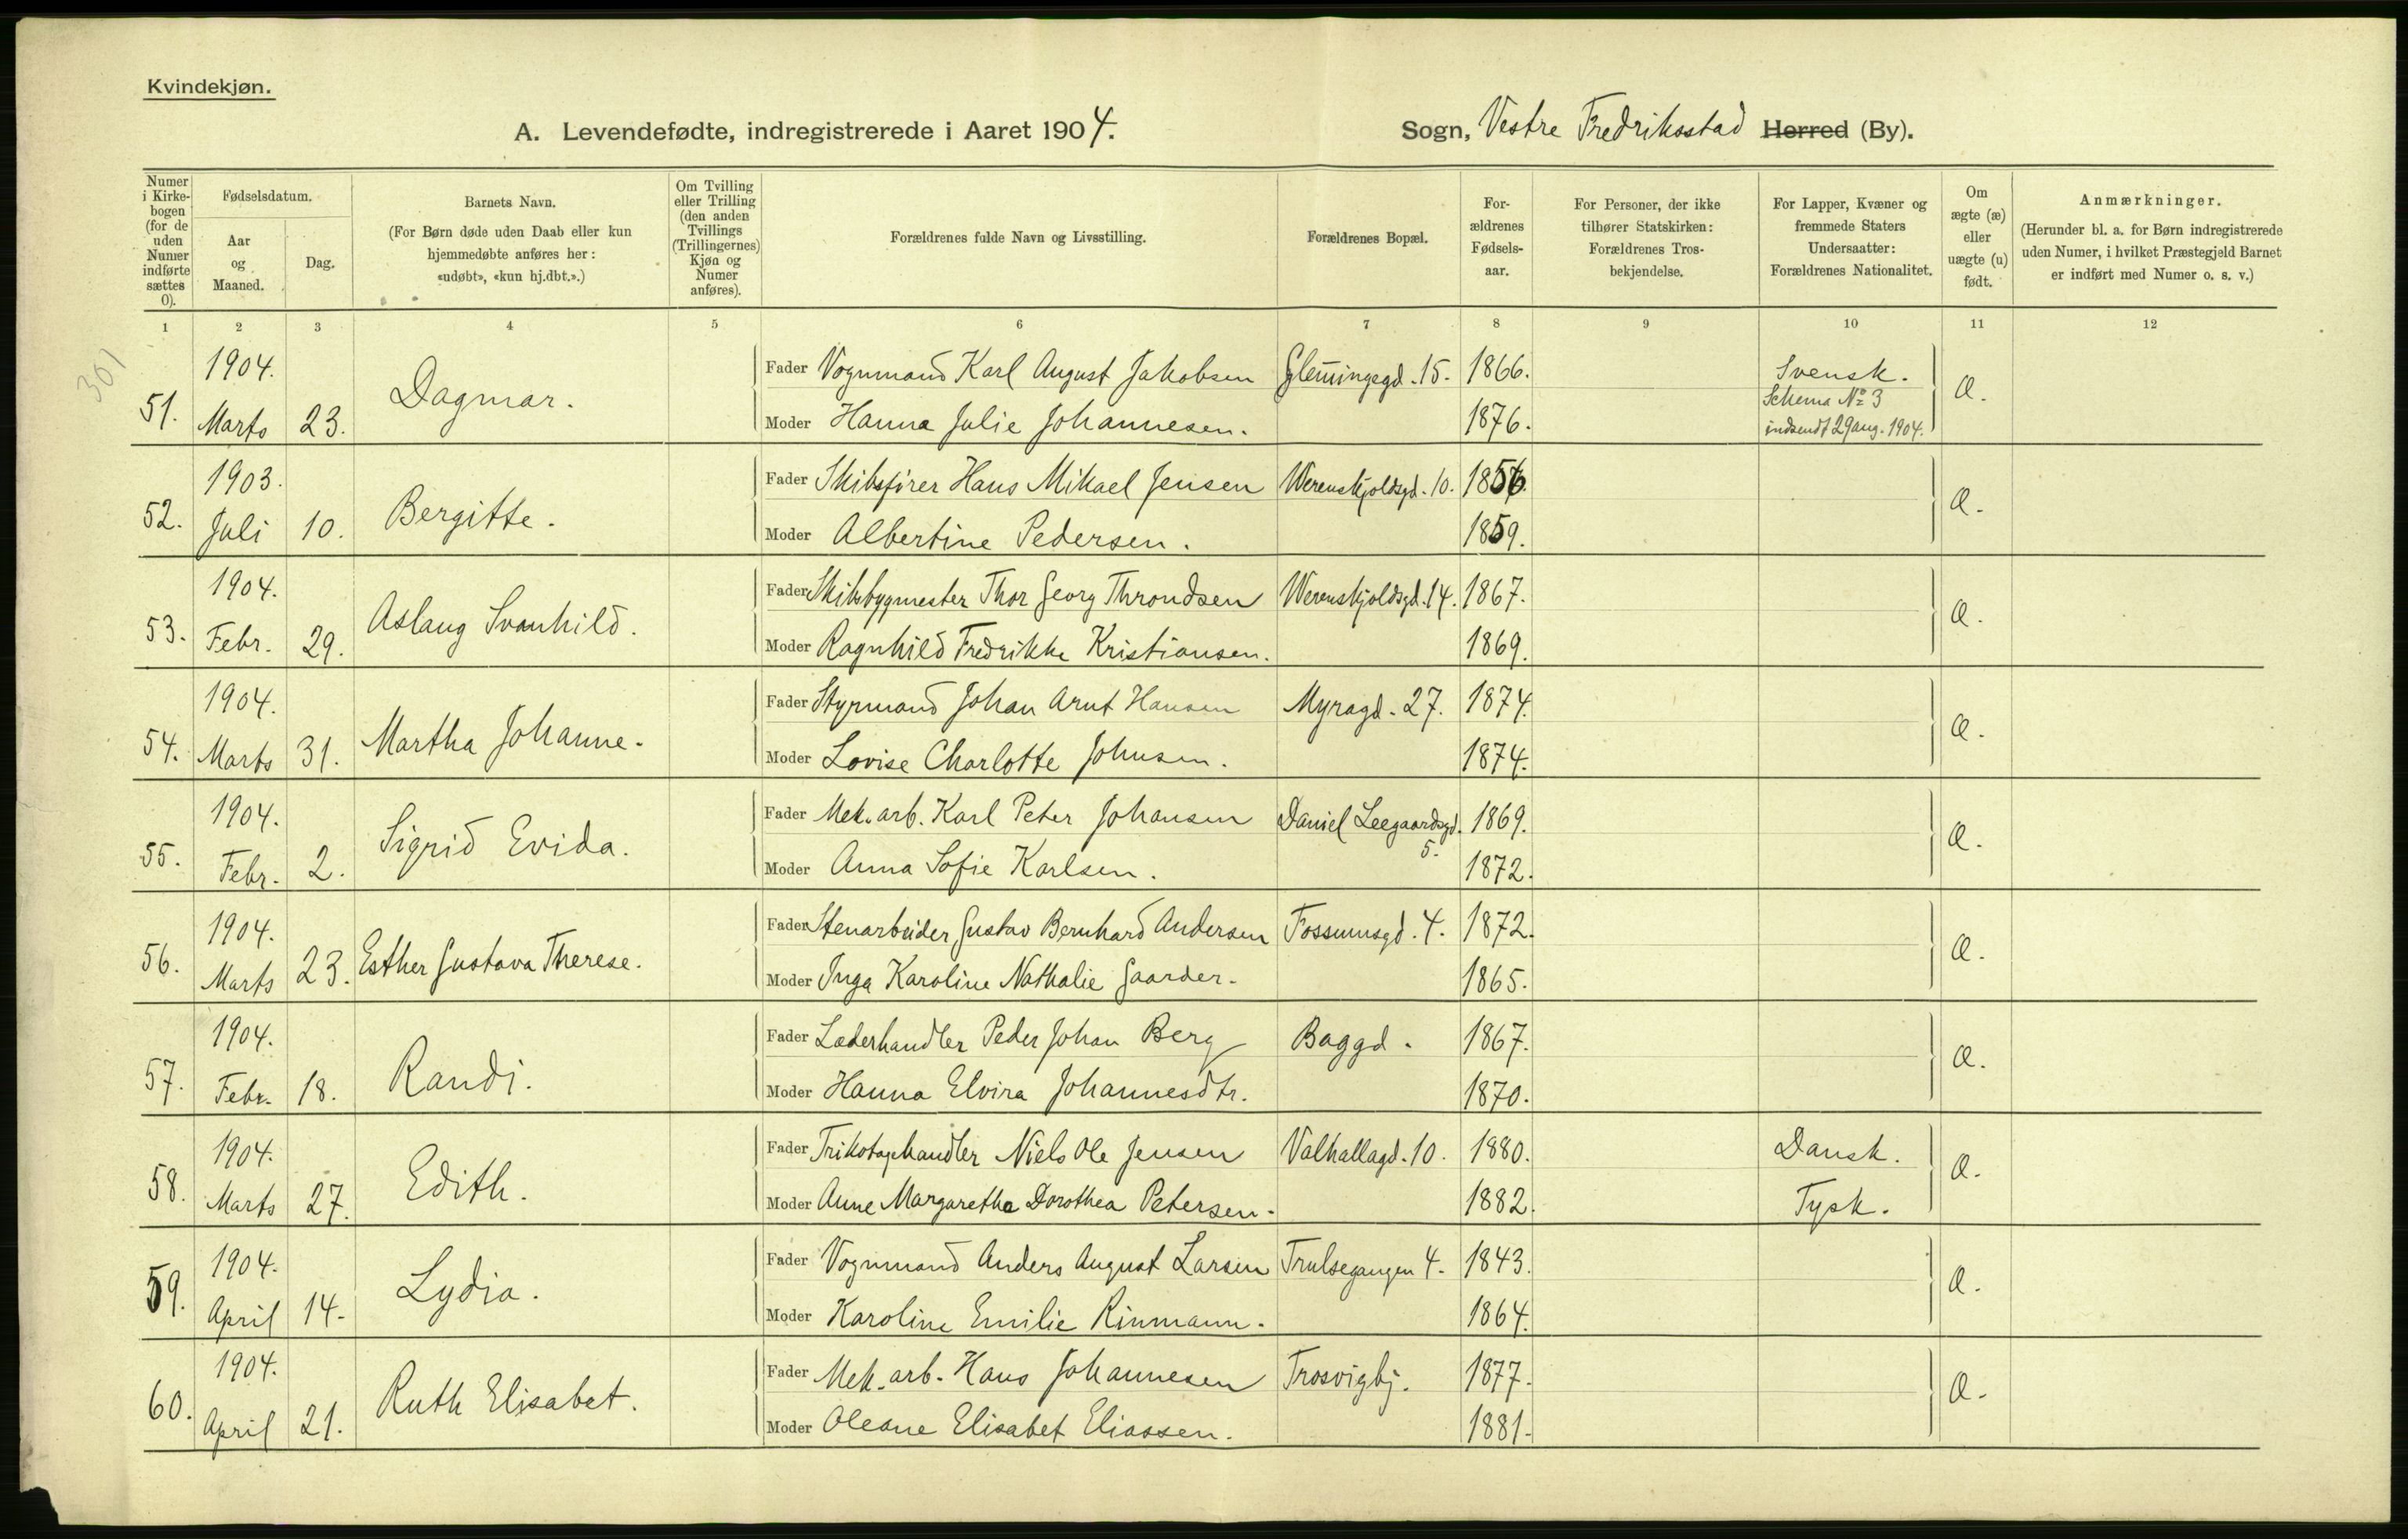 Kvindekjøn.
A. Levendefødte, indregistrerede i Aaret 1904. Sogn, Vestre Fredriksstad Herred (By).
Numer i Kirkebogen (for de uden Numer indførte sættes 0).
Fødselsdatum.
Aar og Maaned.
Dag.
Barnets Navn.
(For Børn døde uden Daab eller kun hjemmedøbte anføres her: «udøbt», «kun hj.dbt.».)
Om Tvilling eller Trilling (den anden Tvillings (Trillingernes) Kjøn og Numer anføres).
Forældrenes fulde Navn og Livsstilling.
Forældrenes Bopæl.
Forældrenes Fødselsaar.
For Personer, der ikke tilhører Statskirken: Forældrenes Trosbekjendelse.
For Lapper, Kvæner og fremmede Staters Undersaatter: Forældrenes Nationalitet.
Om ægte (æ) eller uægte (u) født.
Anmærkninger.
(Herunder bl. a. for Børn indregistrerede uden Numer, i hvilket Præstegjeld Barnet er indført med Numer o. s. v.)
1 2 3 4 5 6 7 8 9 10 11 12
301
51. 1904. Marts 23. Dagmar.
Fader Vognmand Karl August Jakobsen Glemingegd. 15. 1866. Svensk. Æ.
Schema No 3
Moder Hanna Julie Johannesen. 1876. indsendt 29 aug. 1904.
52. 1903. Juli 10. Bergitte.
Fader Skibsfører Hans Mikael Jensen Werenskjoldsgd. 10. 1856. Æ.
Moder Albertine Pedersen. 1859.
53. 1904. Febr. 29. Aslaug Svanhild.
Fader Skibsbygmester Thor Georg Throndsen Werenskjoldsgd. 14. 1867. Æ.
Moder Ragnhild Fredrikke Kristiansen. 1869.
54. 1904. Marts 31. Martha Johanne.
Fader Styrmand Johan Arnt Hansen Myragd. 27. 1874. Æ.
Moder Lovise Charlotte Johnsen. 1874.
55. 1904. Febr. 2. Sigrid Evida.
Fader Mek. arb. Karl Peter Johansen Daniel Leegaardsgd. 5. 1869. Æ.
Moder Anna Sofie Karlsen. 1872.
56. 1904. Marts 23. Esther Gustava Therese.
Fader Stenarbeider Gustav Bernhard Andersen Fossumsgd. 4. 1872. Æ.
Moder Inga Karoline Nathalie Gaarder. 1865.
57. 1904. Febr. 18. Randi.
Fader Læderhandler Peder Johan Berg Baggd. 1867. Æ.
Moder Hanna Elvira Johannesdtr. 1870.
58. 1904. Marts 27. Edith.
Fader Trikotagehandler Niels Ole Jensen Valhallagd. 10. 1880. Dansk. Æ.
Moder Anne Margaretha Dorothea Petersen. 1882. Tysk.
59. 1904. April 14. Lydia.
Fader Vognmand Anders August Larsen Trulsegangen 4. 1843. Æ.
Moder Karoline Emilie Rinmann. 1864.
60. 1904. April 21. Ruth Elisabet.
Fader Mek. arb. Hans Johannesen Trosvigbj. 1877. Æ.
Moder Oleane Elisabet Eliassen. 1881.